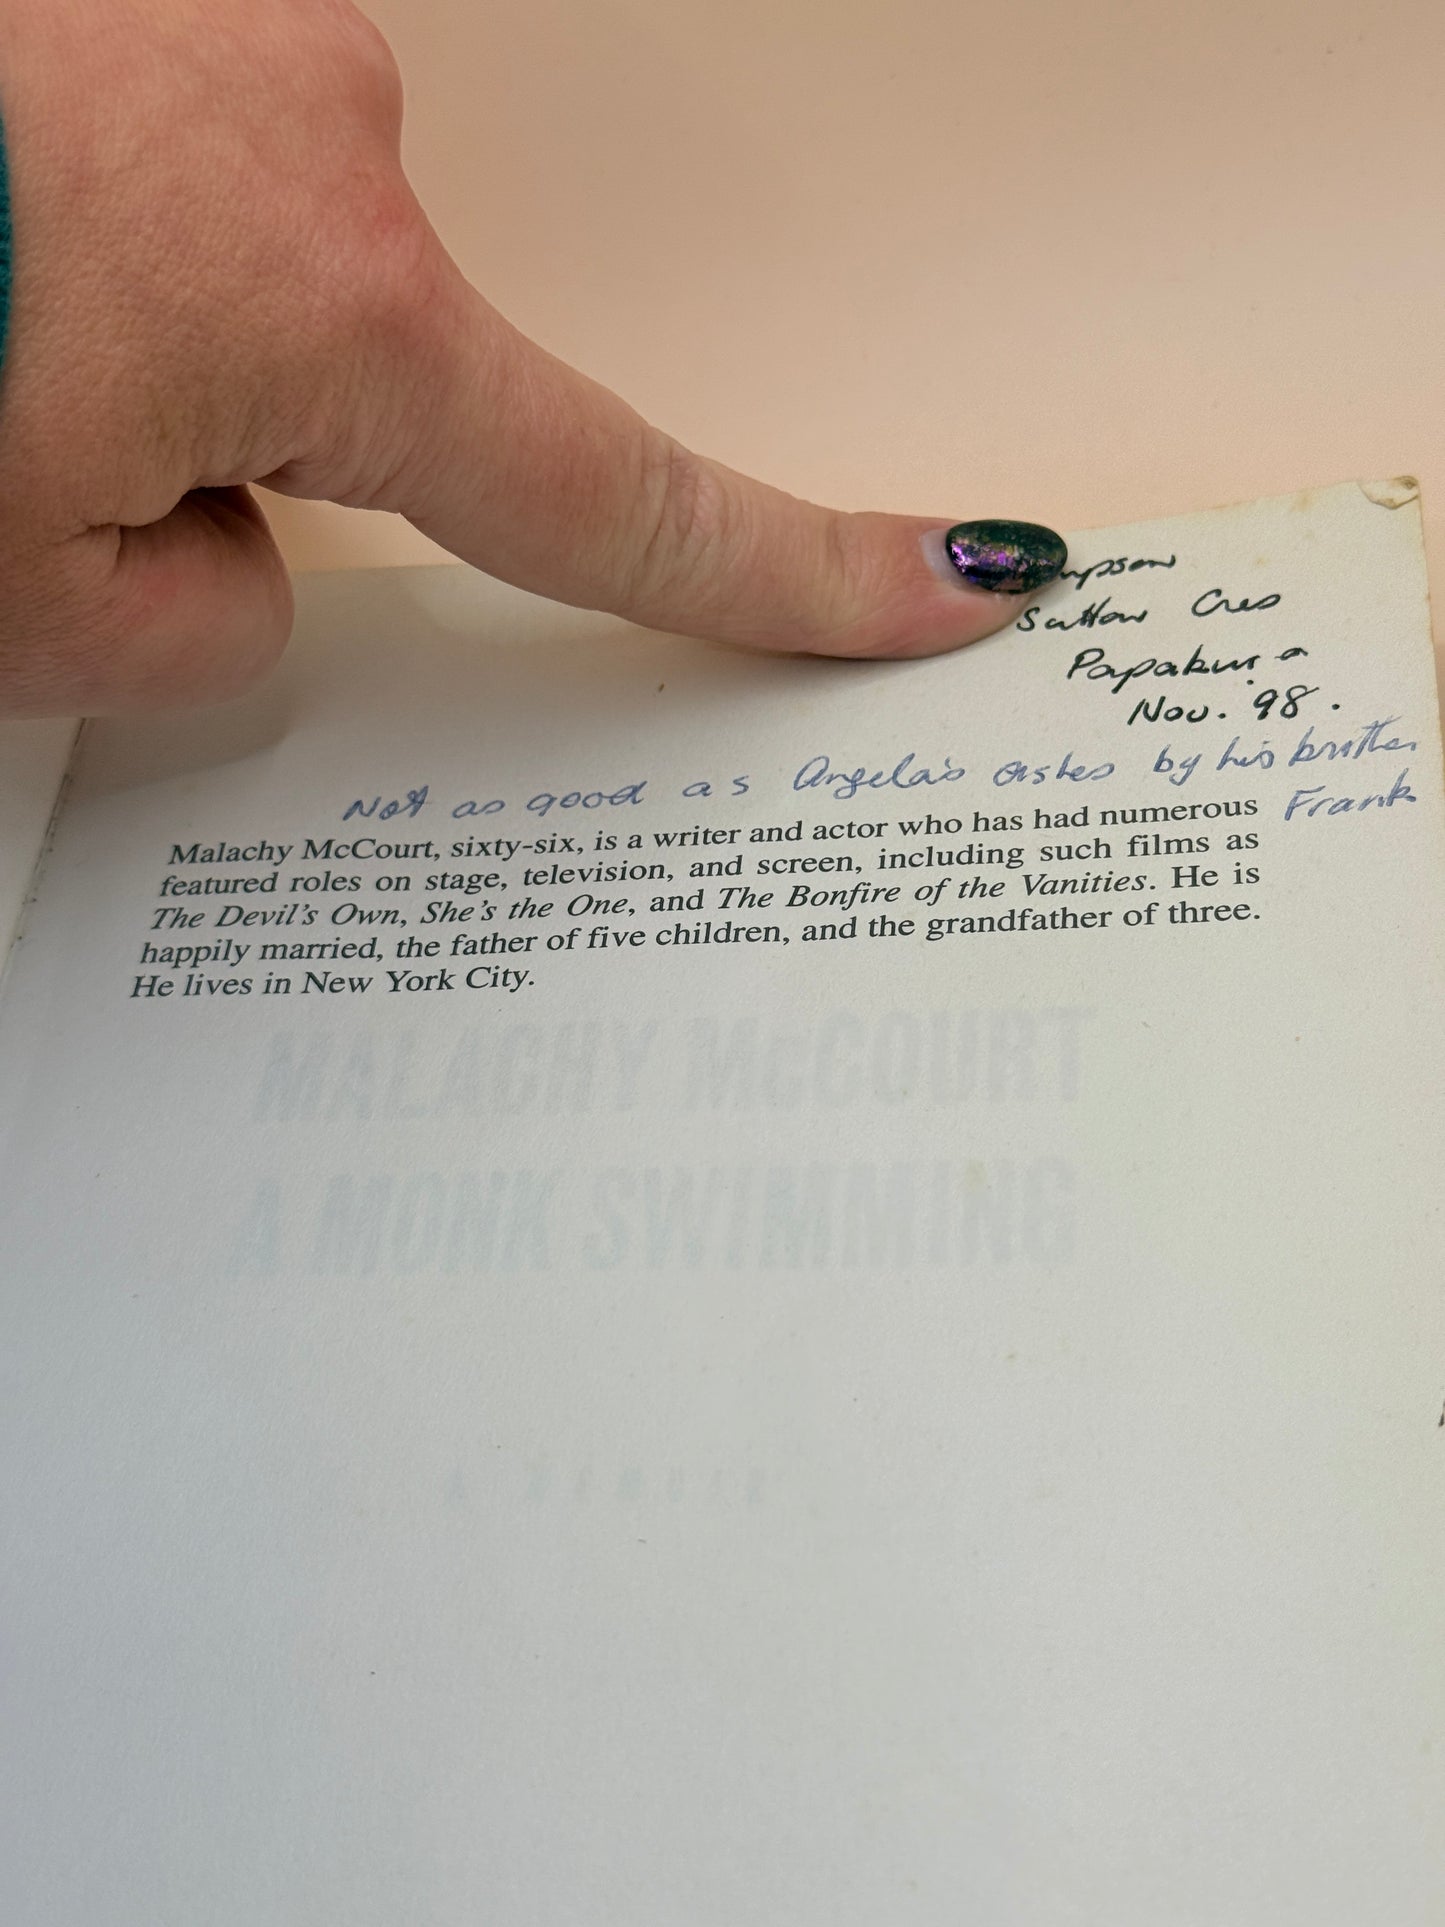 mpson
Sutton Cres
Papakura
Nov. 98.
Not as good as Angela's ashes by his brother
Frank
Malachy McCourt, sixty-six, is a writer and actor who has had numerous
featured roles on stage, television, and screen, including such films as
The Devil's Own, She's the One, and The Bonfire of the Vanities. He is
happily married, the father of five children, and the grandfather of three.
He lives in New York City.
MALACHY McCOURT
A MONK SWIMMING